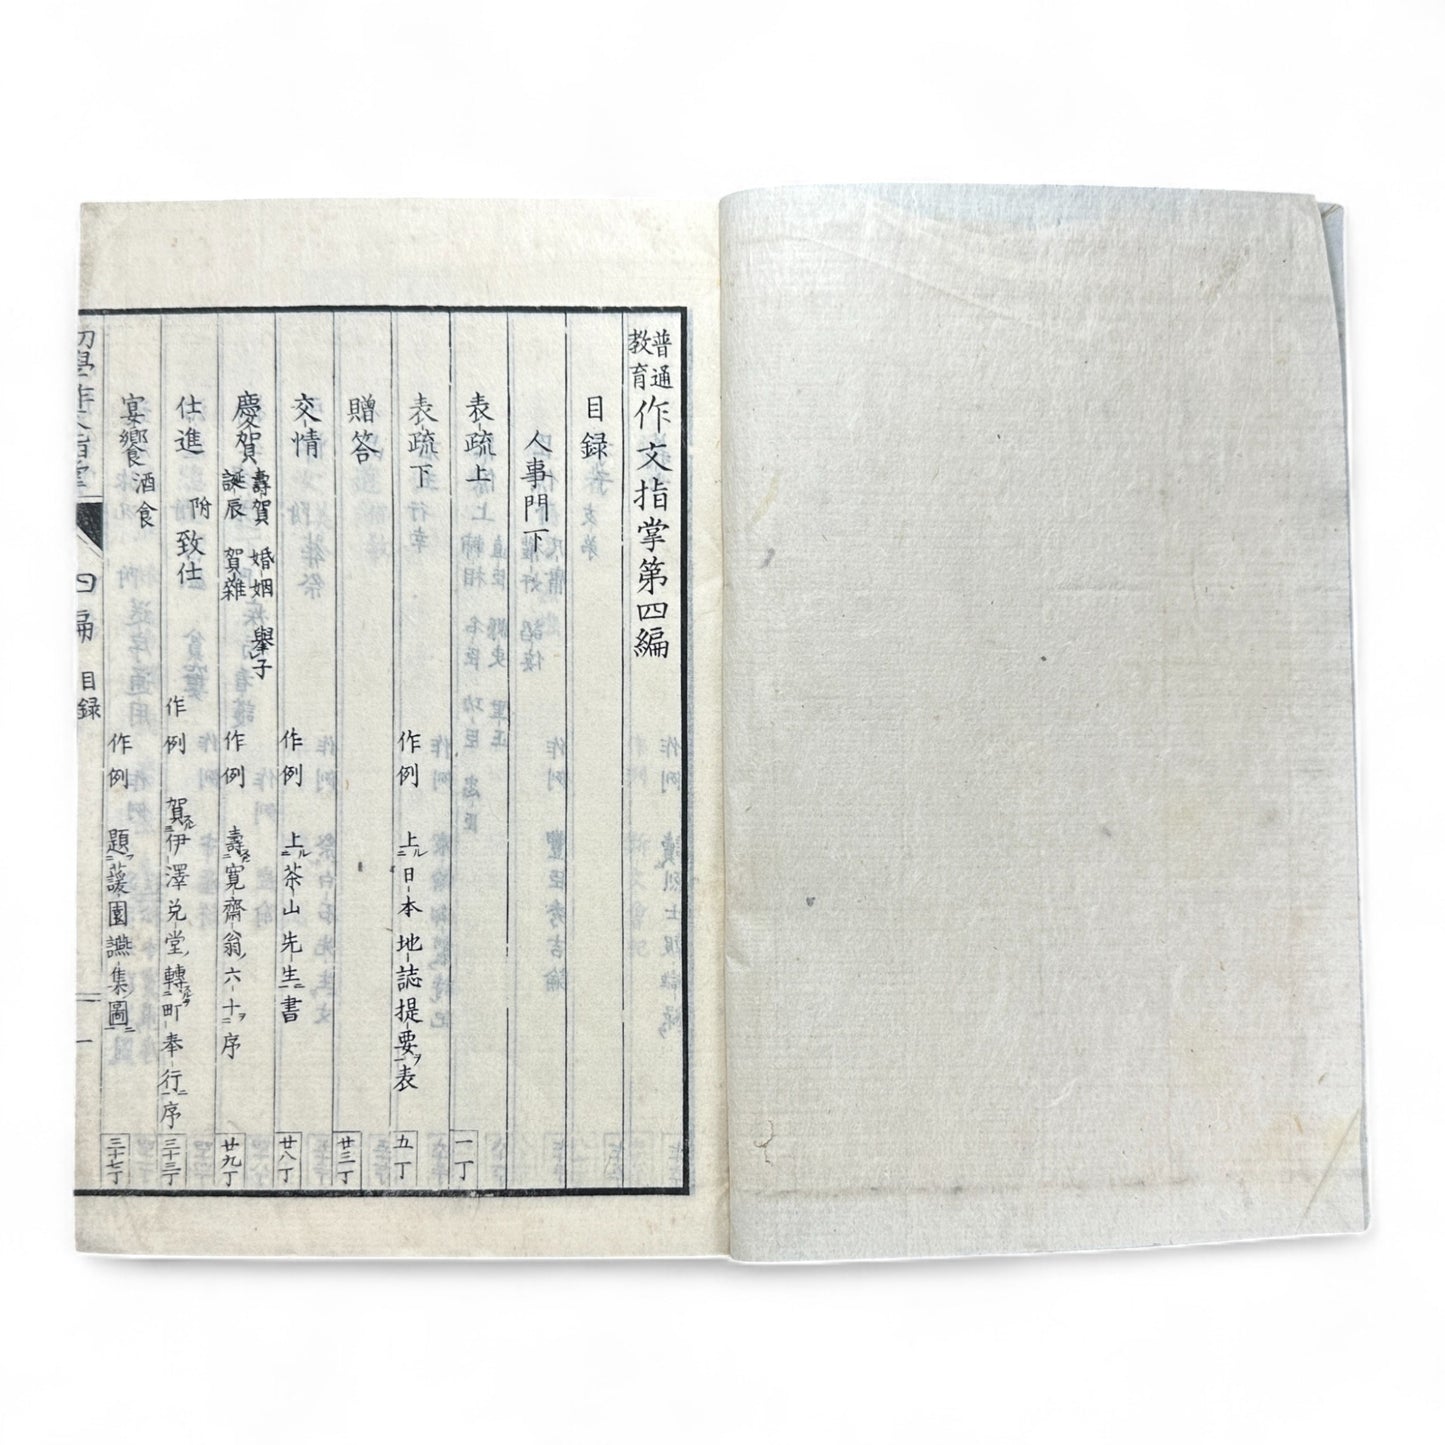 普通教育 作文指掌第四編
目録
人事門下
表疏上 一丁
表疏下 作例 上ル二日本地誌提要ヲ一表 五丁
贈答 廿三丁
交情 作例 上ル二茶山先生一書 廿八丁
慶賀 壽賀 婚姻 擧子 誕辰 賀雜 作例 壽スル二寛齋翁六十ヲ一序 廿九丁
仕進 附致仕 作例 賀スル三伊澤兌堂轉スルヲ二町奉行一序 三十三丁
宴饗 酒食 作例 題ス二蘐園讌集圖一 三十七丁
初學作文指掌 四編 目録 一